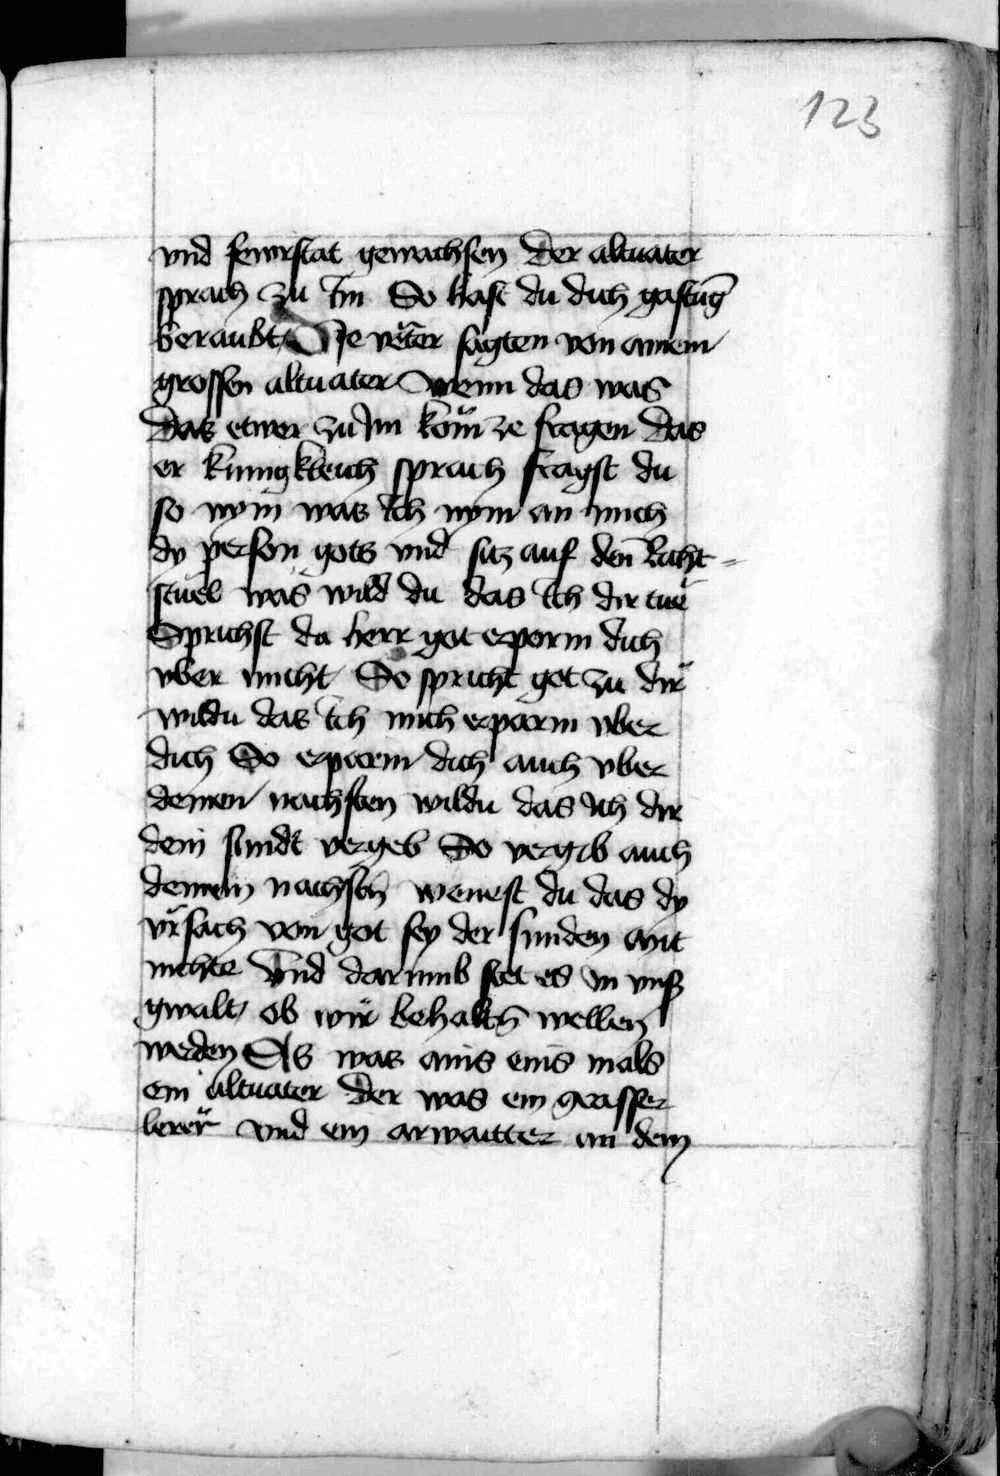 123
vnd fewrstat gewachsen Der altuater
sprach zu Im So hast du dich gastūg
beraubt Die vëter sagten von ainem
grossen altuater wenn das was
Das etwer zu Im köm ze fragen Das
er kunngkleich sprach fragst du
so nym was Ich nym an mich
dy person gots vnd sitz auf den Richt-
stuel was wild du das Ich dir tue
Sprichst du herr got erporm dich
vber micht So spricht got zu dir
wildu das Ich mich erparm vber
dich So erparm dich auch vber
deinen nachsten wildu das Ich dir
dein sundt vergeb So vergib auch
deinem nachstn̄ wenest du das dy
vrsach von got sey der sunden ayt
nichte Vnd darumb stet es in vnss
gwalt ob wir behaltn̄ wellen
werden Es was ains eins mals
ein altuater Der was ein grasser
lerer vnd ein arwaitter an dem